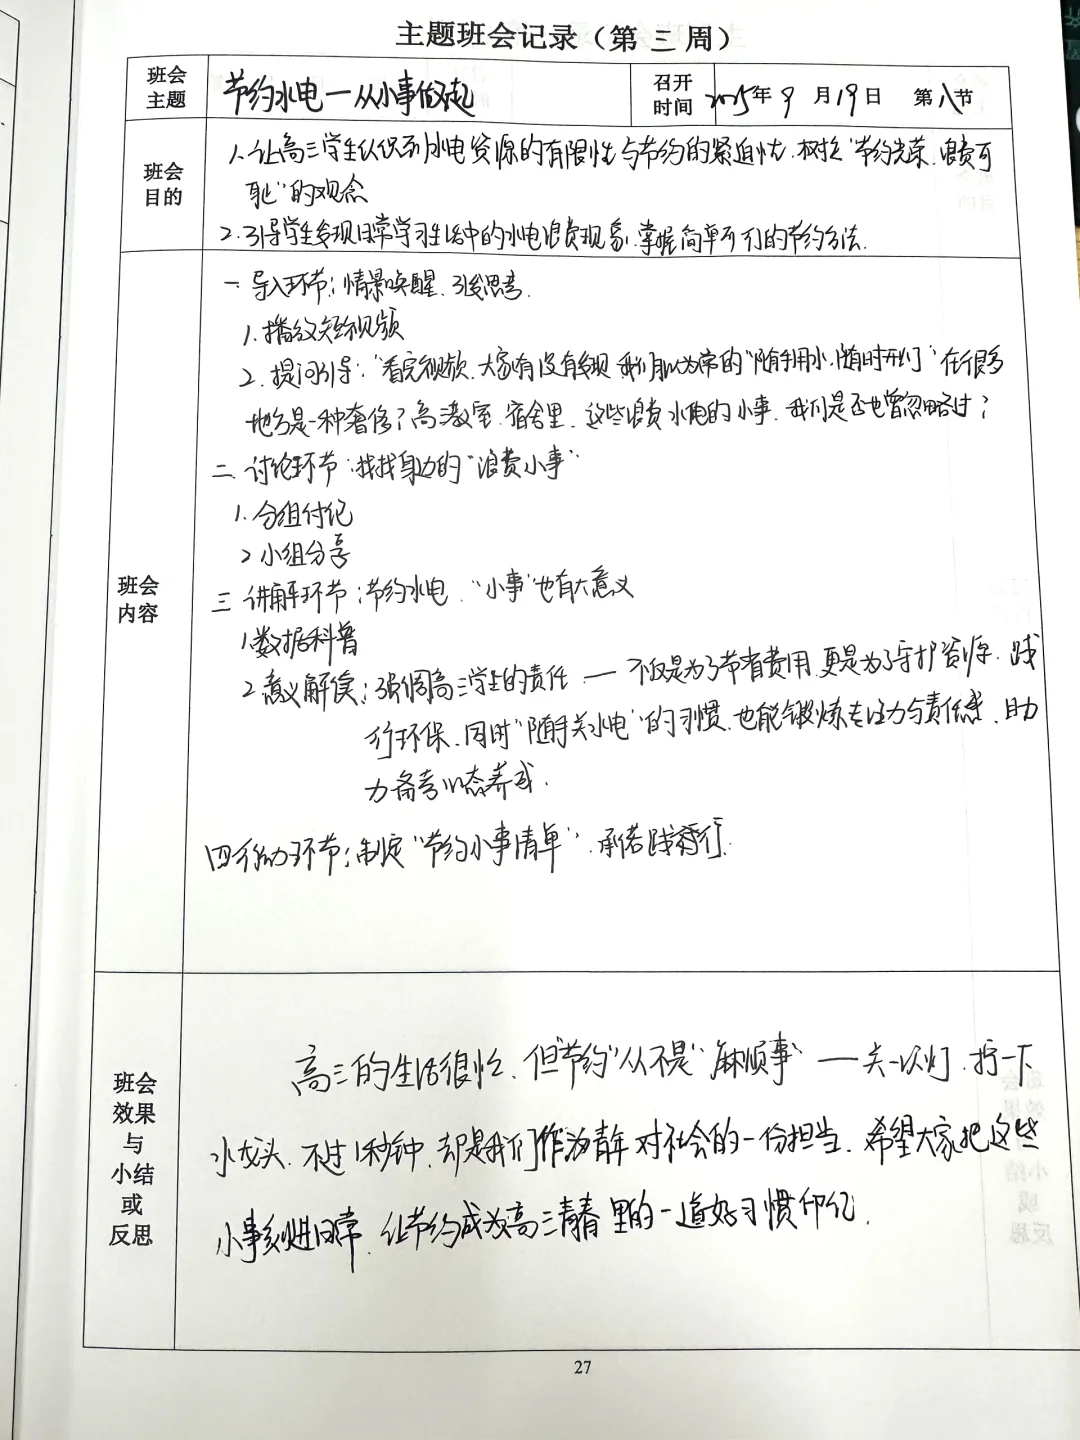 主题班会记录（第 三 周）
班会主题 节约水电—从小事做起 召开时间 2025年 9 月 19 日 第八节
班会目的
1. 让高三学生认识到水电资源的有限性与节约的紧迫性,树立"节约光荣、浪费可
耻"的观念
2. 引导学生发现日常学习生活中的水电浪费现象,掌握简单可行的节约方法.
班会内容
一 导入环节:情景唤醒、引发思考.
1. 播放短视频
2. 提问引导:"看完视频,大家有没有发现 我们习以为常的"随手用水,随时开灯"在很多
地方是一种奢侈?高三教室、宿舍里,这些浪费水电的小事,我们是否也曾忽略过?
二 讨论环节:找找身边的"浪费小事"
1. 分组讨论
2 小组分享
三 讲解环节:节约水电,"小事"也有大意义
1 数据科普
2 意义解读:强调高三学生的责任 — 不仅是为了节省费用,更是为了守护资源、践
行环保、同时"随手关水电"的习惯,也能锻炼专注力与责任感、助
力备考心态养成.
四 行动环节:制定"节约小事清单",承诺践行.
班会效果与小结或反思
高三的生活很忙,但"节约"从不是"麻烦事"—关一次灯,拧一下
水龙头,不过1秒钟,却是我们作为青年对社会的一份担当.希望大家把这些
小事刻进日常,让节约成为高三青春里的一道好习惯印记.
27